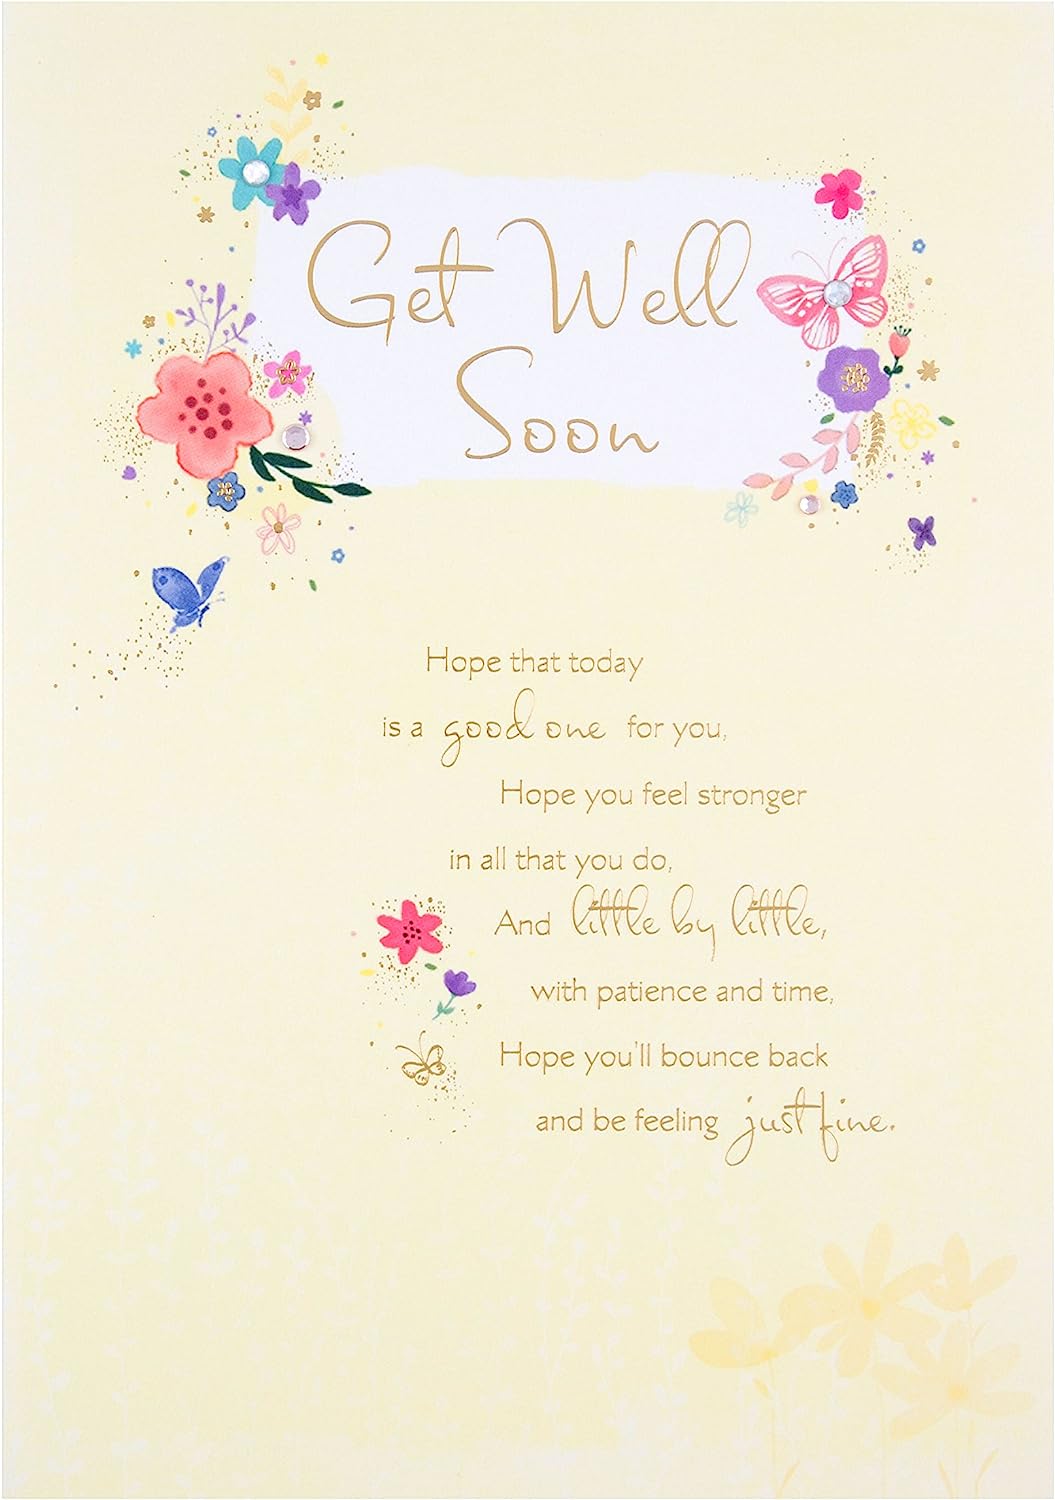 Get Well
Soon
Hope that today
is a good one for you,
Hope you feel stronger
in all that you do,
And little by little,
with patience and time,
Hope you'll bounce back
and be feeling just fine.